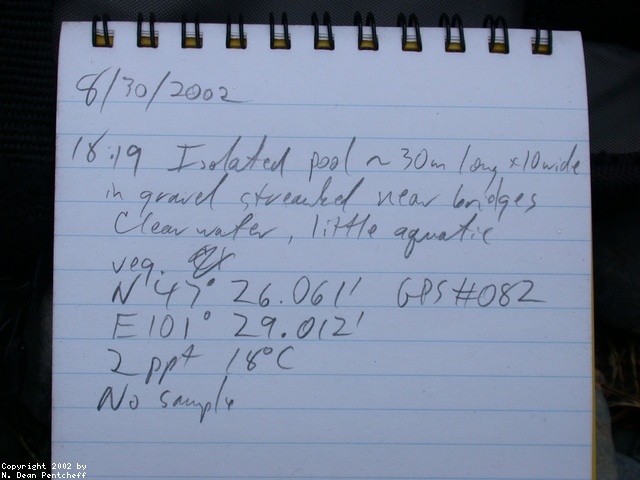 8/30/2002
18:19 Isolated pool ~ 30m long x10wide
in gravel streambed near bridges
Clear water, little aquatic
veg.
N 47° 26.061' GPS #082
E 101° 29.012'
2 ppt 18°C
No sample
Copyright 2002 by
N. Dean Pentcheff